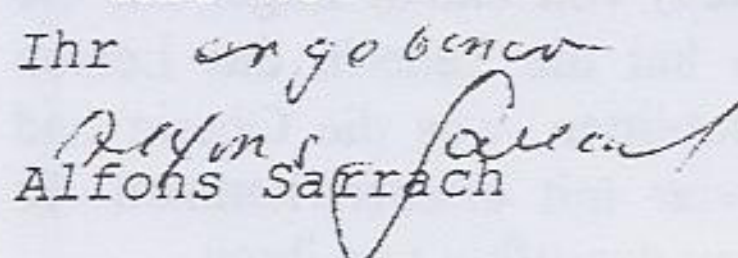 Ihr ergebener
Alfons Sarrach
Alfons Sarrach